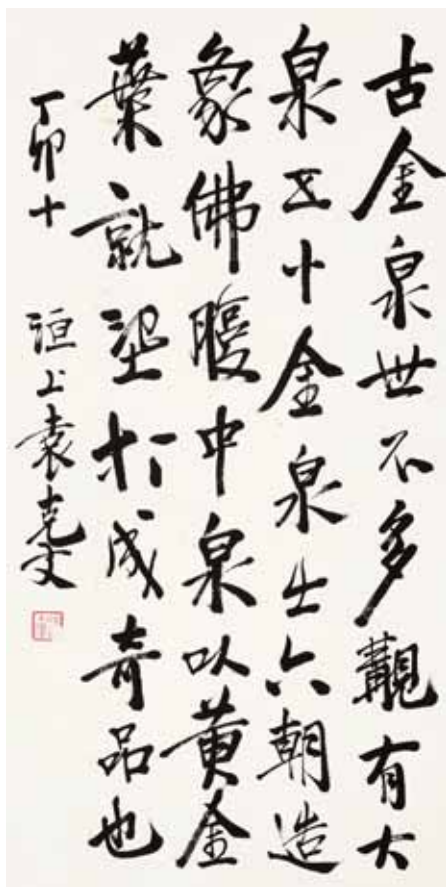 古金泉世不多覯有大
泉五十金泉出六朝造
象佛腹中泉以黄金
葉就型打成奇品也
丁卯十 洹上袁克文